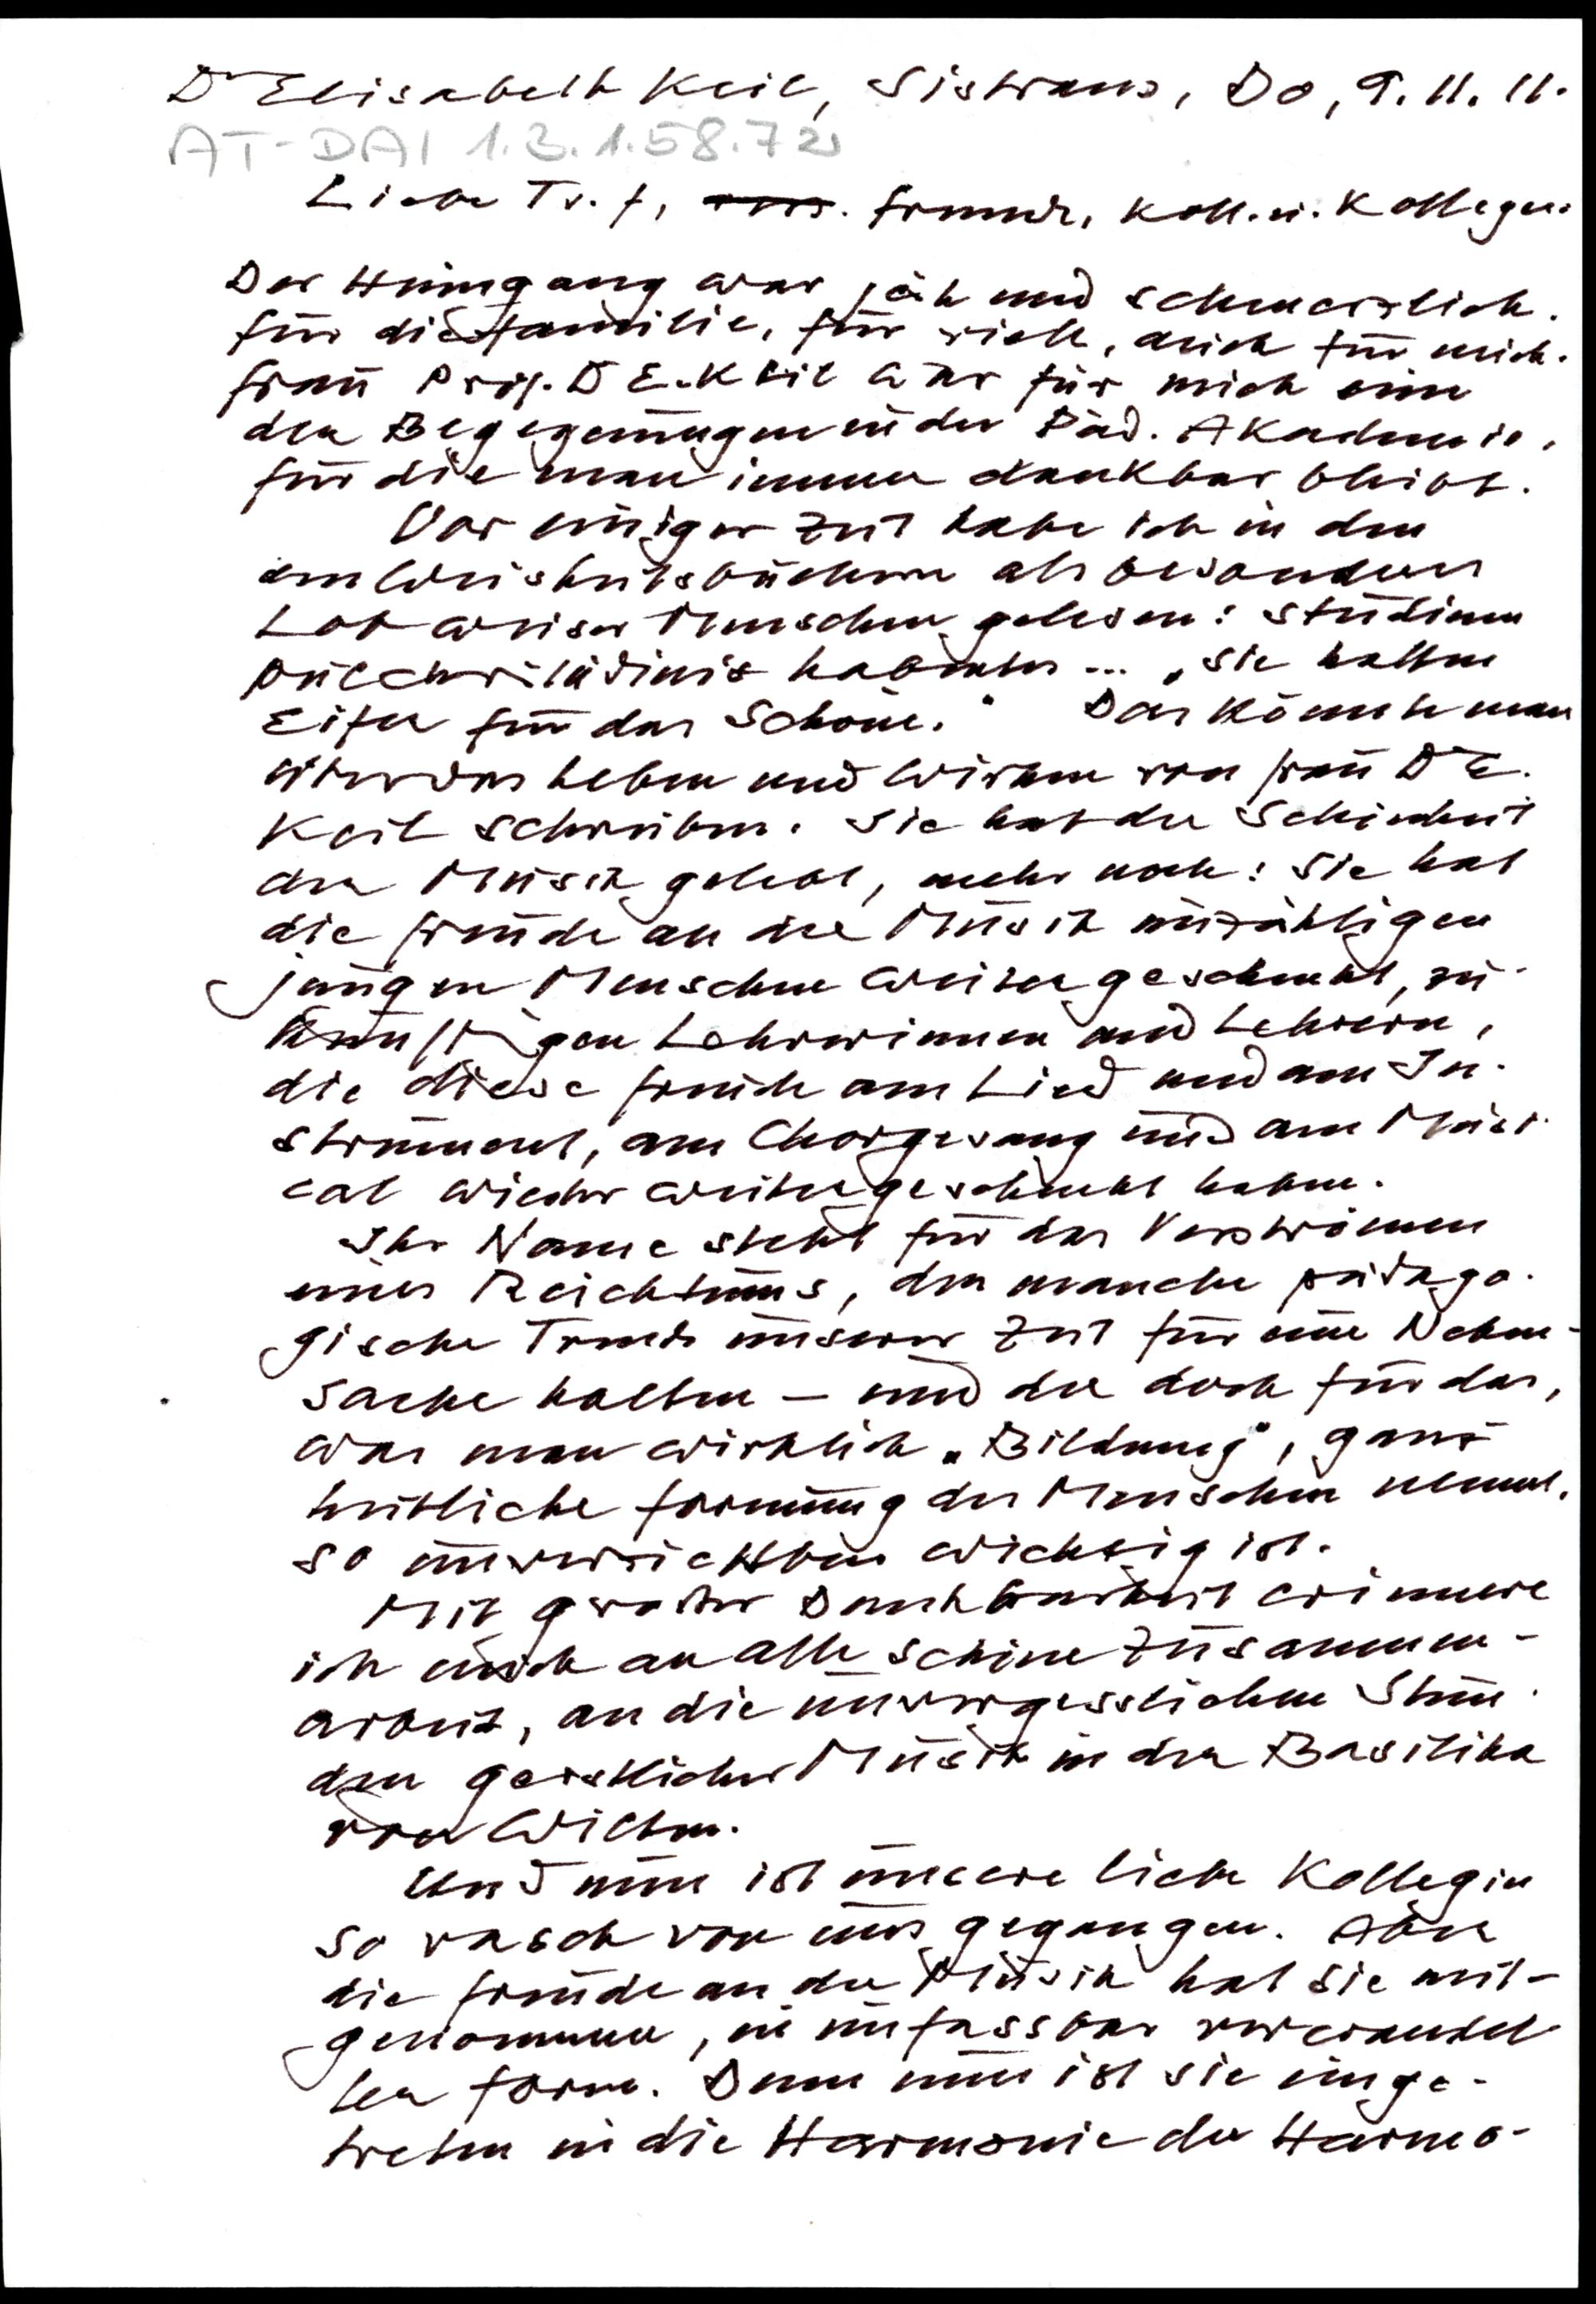 Dr Elisabeth Keil, Sistrans, Do, 9.11.11.
AT-DAI 1.3.1.58.72
Liebe Tr. f, Freunde, Koll. u. Kollegen.
Der Heimgang war jäh und schmerzlich.
für die Familie, für viele, auch für mich.
Frau Prof. D E. Keil war für mich eine
der Begegnungen in der Päd. Akademie,
für die man immer dankbar bleibt.
Vor einiger Zeit habe ich in den
den Weisheitsbüchern als besonderes
Lob weiser Menschen gelesen: studium
pulchritudinis habentes ... "Sie hatten
Eifer für das Schöne." Das könnte man
über das Leben und Wirken von Frau Dr E.
Keil schreiben. Sie hat die Schönheit
der Musik gelebt, mehr noch: Sie hat
die Freude an der Musik unzähligen
jungen Menschen weitergeschenkt, zu-
künftigen Lehrerinnen und Lehrern,
die diese Freude am Lied und am In-
strument, am Chorgesang und am Musi-
cal wieder weitergeschenkt haben.
Ihr Name steht für das Verströmen
eines Reichtums, den manche pädago-
gische Trends unserer Zeit für eine Neben-
sache halten – und der doch für das,
was man wirklich „Bildung", ganz
heitliche Formung des Menschen nennt,
so unverzichtbar wichtig ist.
Mit großer Dankbarkeit erinnere
ich mich an alle schöne Zusammen-
arbeit, an die unvergesslichen Stun-
den geistlicher Musik in der Basilika
von Wilten.
Und nun ist unsere liebe Kollegin
so rasch von uns gegangen. Aber
die Freude an der Musik hat sie mit-
genommen, in unfassbar verwandel-
ter Form. Denn nun ist sie einge-
treten in die Harmonie der Harmo-